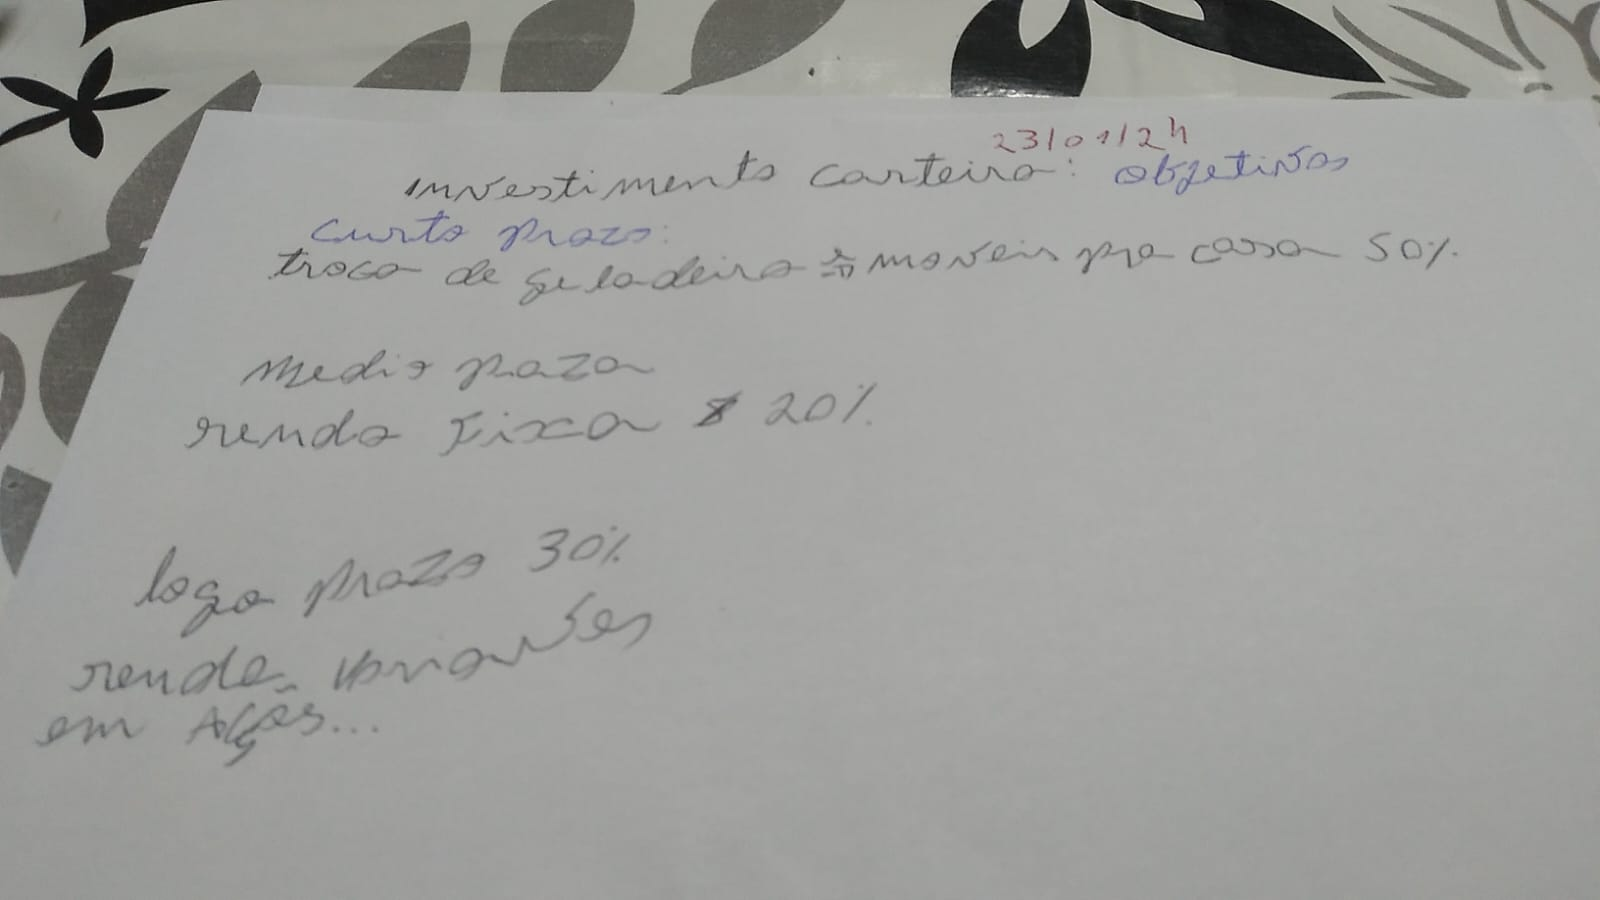 23/01/24
investimento carteira: objetivos
curto prazo:
troca de geladeira moveis pra casa 50%.
Medio prazo
renda Fixa 20%.
logo prazo 30%
renda variaveis
em Ações...